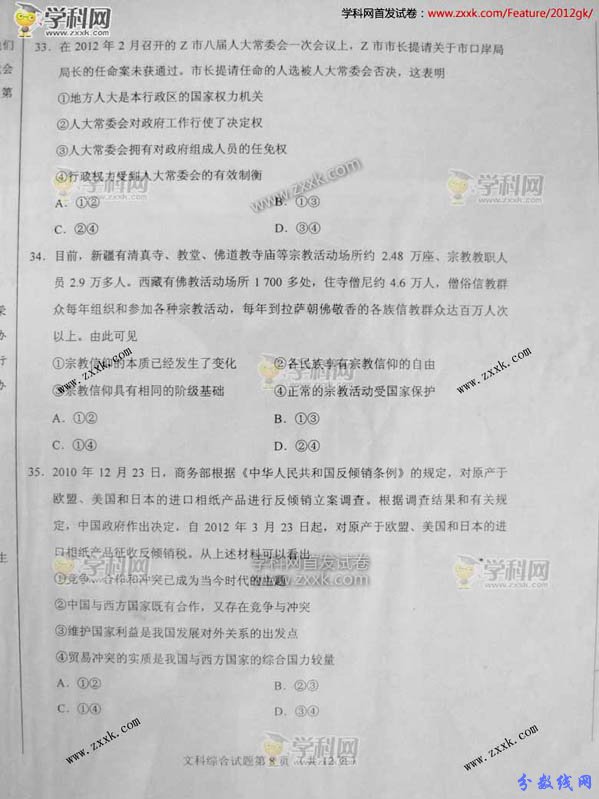 学科网首发试卷：www.zxxk.com/Feature/2012gk/
学科网
33. 在 2012 年 2 月召开的 Z 市八届人大常委会一次会议上，Z 市市长提请关于市口岸局
们
局长的任命案未获通过。市长提请任命的人选被人大常委会否决，这表明
会
①地方人大是本行政区的国家权力机关
第
②人大常委会对政府工作行使了决定权
③人大常委会拥有对政府组成人员的任免权
④行政权力受到人大常委会的有效制衡
学科网
www.zxxk.com
学科网
A. ①②
B. ①③
C. ②④
D. ③④
34. 目前，新疆有清真寺、教堂、佛道教寺庙等宗教活动场所约 2.48 万座、宗教教职人
员 2.9 万多人。西藏有佛教活动场所 1 700 多处，住寺僧尼约 4.6 万人，僧俗信教群
众每年组织和参加各种宗教活动，每年到拉萨朝佛敬香的各族信教群众达百万人次
以上。由此可见
办
行
办
①宗教信仰的本质已经发生了变化
②各民族享有宗教信仰的自由
③宗教信仰具有相同的阶级基础
④正常的宗教活动受国家保护
www.zxxk.com
学科网
www.zxxk.com
A. ①②
B. ①③
C. ①④
D. ②④
35. 2010 年 12 月 23 日，商务部根据《中华人民共和国反倾销条例》的规定，对原产于
欧盟、美国和日本的进口相纸产品进行反倾销立案调查。根据调查结果和有关规
定，中国政府作出决定，自 2012 年 3 月 23 日起，对原产于欧盟、美国和日本的进
口相纸产品征收反倾销税。从上述材料可以看出
生
学科网
学科网首发试卷
www.zxxk.com
学科网
①竞争、合作和冲突已成为当今时代的主题
②中国与西方国家既有合作，又存在竞争与冲突
③维护国家利益是我国发展对外关系的出发点
④贸易冲突的实质是我国与西方国家的综合国力较量
A. ①②
B. ②③
C. ①④
D. ③④
www.zxxk.com
学科网
www.zxxk.com
文科综合试题第 8 页（共 12 页）
分数线网